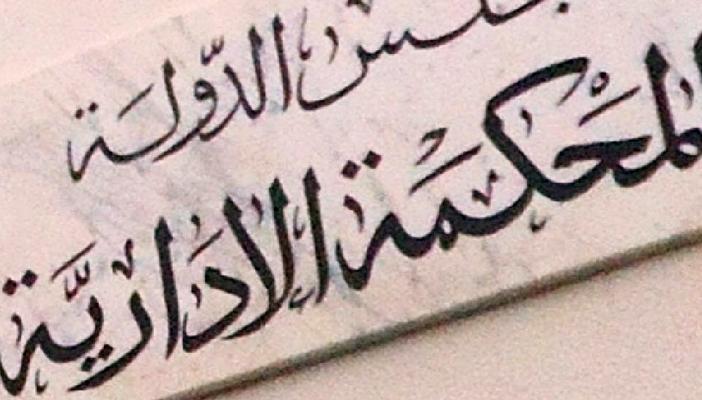 مجلس الدّولة
المَحْكَمَة الإدَاريَّة